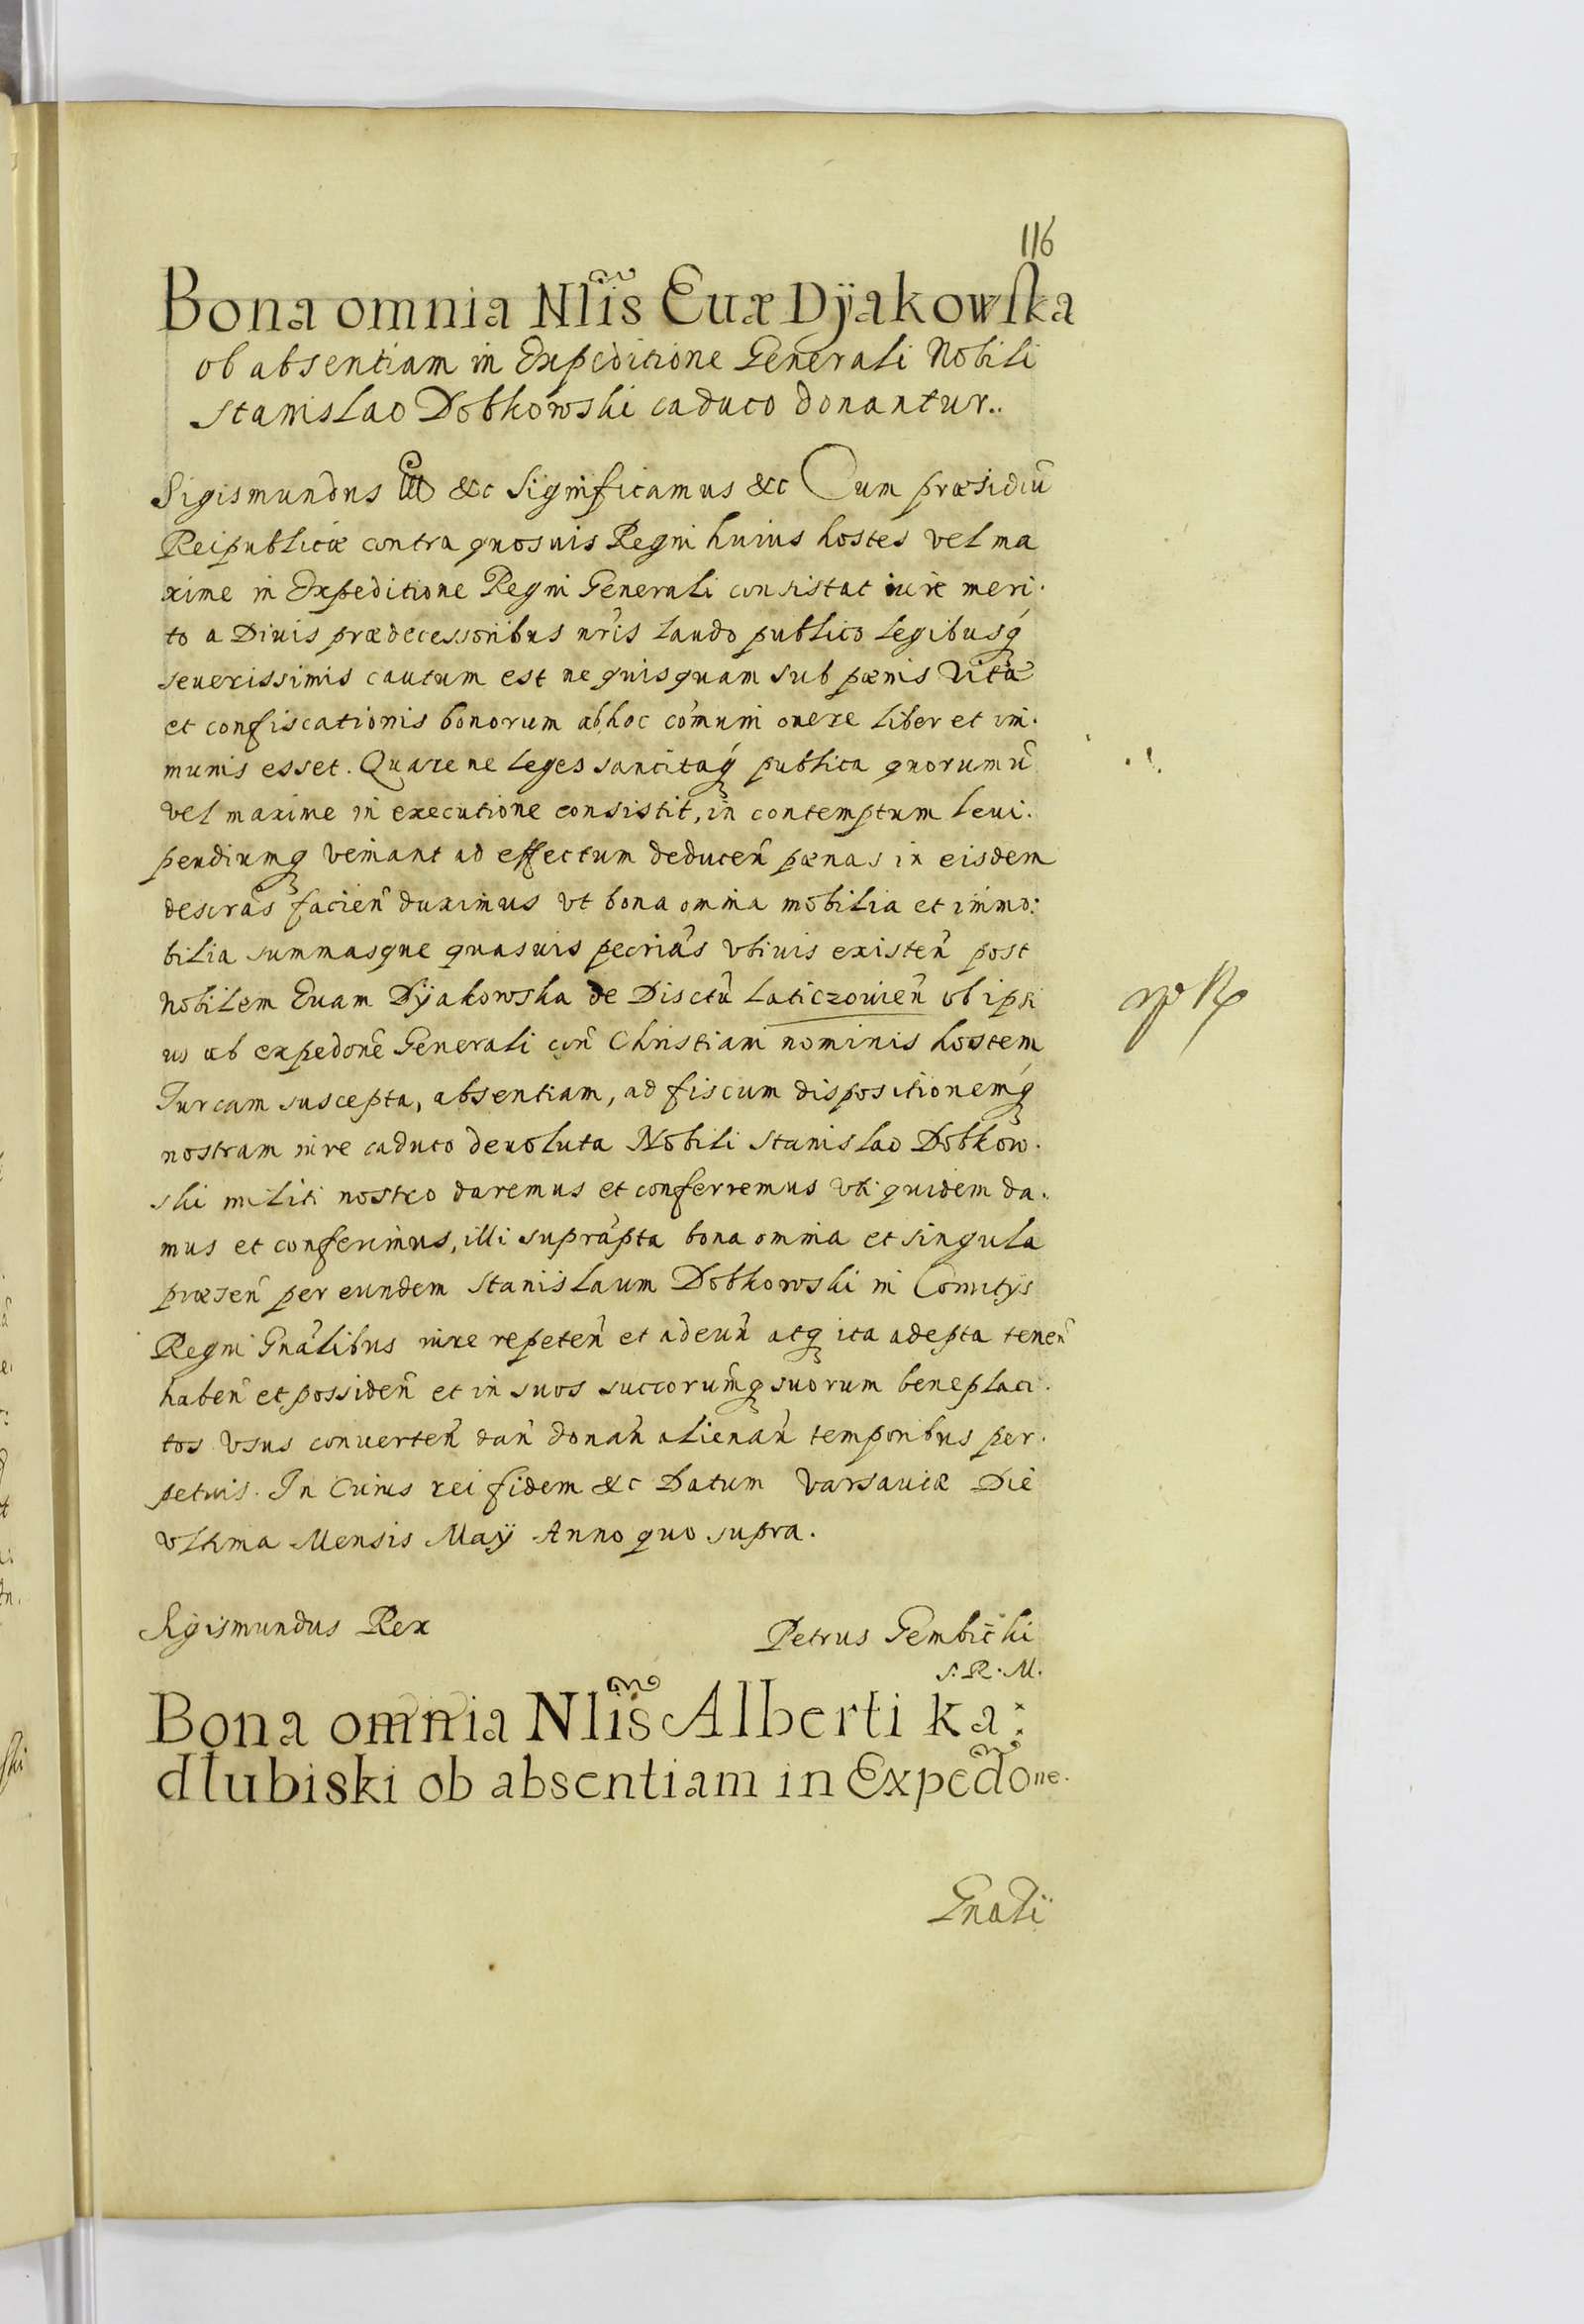 116
Bona omnia Nlis̃ Euæ Dÿakowska
ob absentiam in Expeditione Generali Nobili
Stanislao Dobkowski caduco donantur..
Sigismundus III &c Significamus &c Cum præsidiũ
Reipublicæ contra quosuis Regni huius hostes vel ma
xime in Expeditione Regni Generali consistat iure meri.
to a Diuis prædecessoribus nr̃is laudo publico legibusq́
seuerissimis cautum est ne quisquam sub pœnis vitæ
et confiscationis bonorum ab hoc com̃uni onere liber et im.
munis esset. Quare ne leges sancitaq́ publica quorum ũ
vel maxime in executione consistit, in contemptum leui.
pendiumq veniant ad effectum deducen̄ pœnas in eisdem
descrãs facien̄ duximus vt bona omnia mobilia et immo:
bilia summasque quasuis pecriãs vbiuis existen̄ post
Nobilem Euam Dÿakowska de Disctũ Laticzouien̄ ob ipsi
us ab expedonẽ Generali con̄ Christiani nominis hostem
Turcam suscepta, absentiam, ad fiscum dispositionemq́
nostram iure caduco deuoluta Nobili Stanislao Dobkow.
ski militi nostro daremus et conferremus vti quidem da.
mus et conferimus, illi suprãpta bona omnia et singula
præsen̄ per eundem Stanislaum Dobkowski in Comitÿs
Regni Gnãlibus iure repeten̄ et adeun̄ atq ita adepta tenen̄
haben̄ et possiden̄ et in suos succorum̃q suorum beneplaci.
tos vsus conuerten̄ dan̄ donan̄ alienan̄ temporibus per.
petuis. In Cuius rei fidem &c Datum Varsauiæ Die
vltima Mensis Maÿ Anno quo supra.
Sigismundus Rex
Petrus Gembicki
S. R. M.
Bona omnia Nlis̃ Alberti Ka:
dłubiski ob absentiam in Expedõne.
Gnali